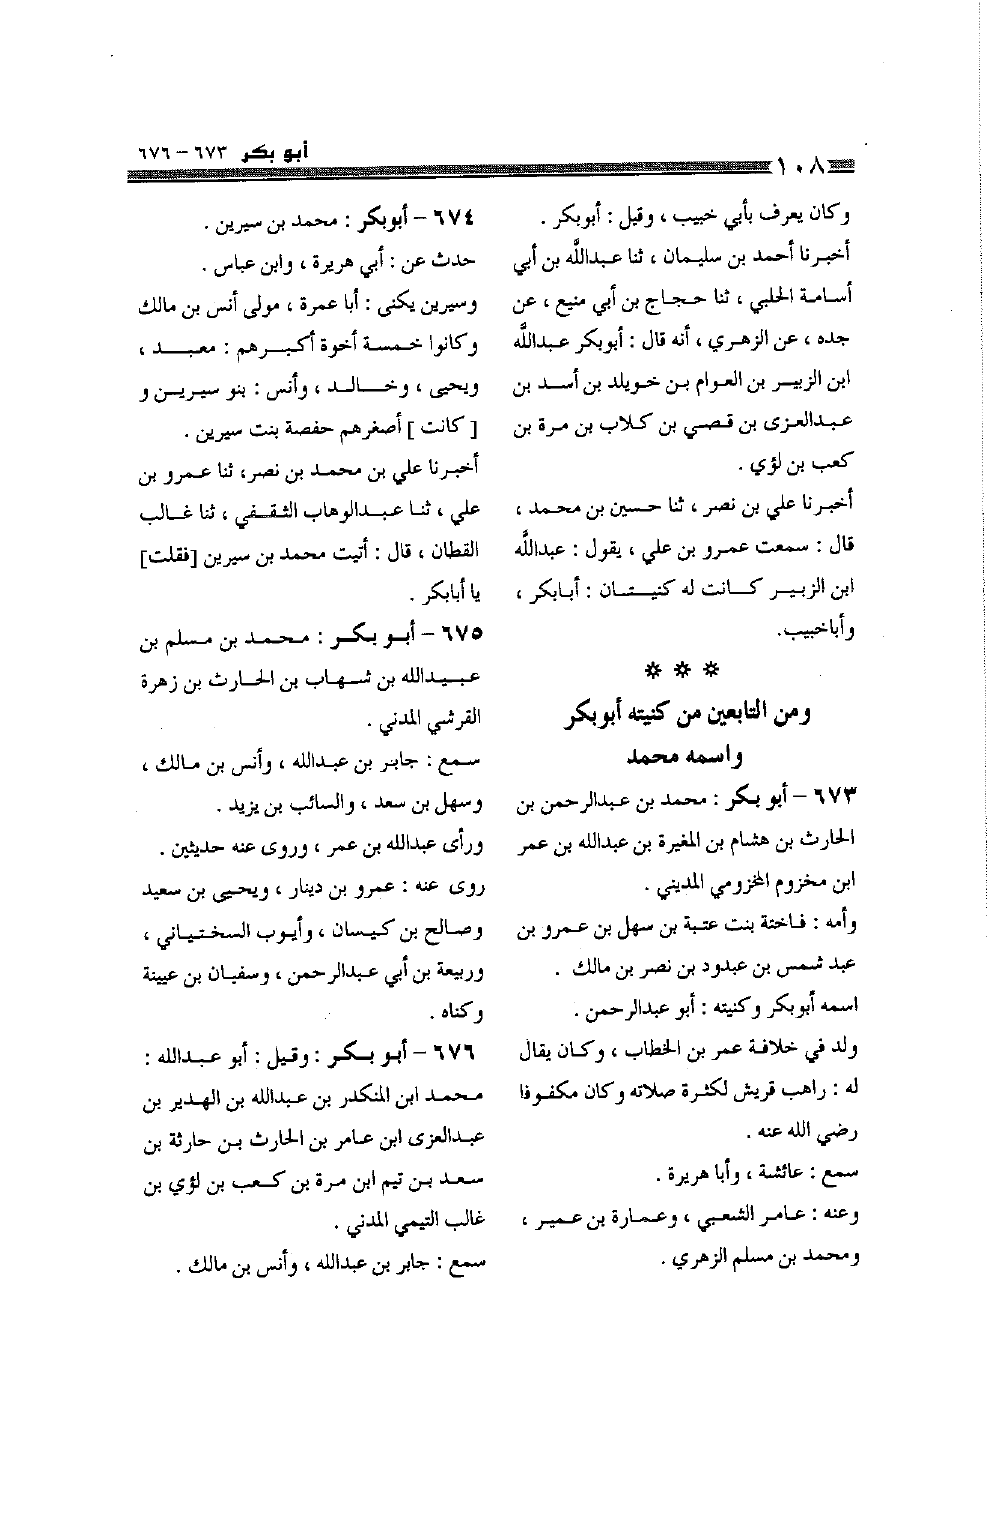 أبو بكر ٦٧٣ – ٦٧٦
١٠٨
وكان يعرف بأبي خبيب ، وقيل : أبوبكر .
أخبرنا أحمد بن سليمان ، ثنا عبدالله بن أبي
أسامة الحلبي ، ثنا حجاج بن أبي منيع ، عن
جده ، عن الزهري ، أنه قال : أبوبكر عبدالله
ابن الزبير بن العوام بن خويلد بن أسد بن
عبدالعزى بن قصي بن كلاب بن مرة بن
كعب بن لؤي .
أخبرنا علي بن نصر ، ثنا حسين بن محمد ،
قال : سمعت عمرو بن علي ، يقول : عبدالله
ابن الزبير كانت له كنيتان : أبابكر ،
وأباخبيب.
*** 
ومن التابعين من كنيته أبوبكر
واسمه محمد
٦٧٣ – أبو بكر : محمد بن عبدالرحمن بن
الحارث بن هشام بن المغيرة بن عبدالله بن عمر
ابن مخزوم المخزومي المديني .
وأمه : فاختة بنت عتبة بن سهل بن عمرو بن
عبد شمس بن عبدود بن نصر بن مالك .
اسمه أبوبكر وكنيته : أبو عبدالرحمن .
ولد في خلافة عمر بن الخطاب ، وكان يقال
له : راهب قريش لكثرة صلاته وكان مكفوفا
رضي الله عنه .
سمع : عائشة ، وأبا هريرة .
وعنه : عامر الشعبي ، وعمارة بن عمير ،
ومحمد بن مسلم الزهري .
٦٧٤ – أبوبكر : محمد بن سيرين .
حدث عن : أبي هريرة ، وابن عباس .
وسيرين يكنى : أبا عمرة ، مولى أنس بن مالك
وكانوا خمسة أخوة أكبرهم : معبد ،
ويحيى ، وخالد ، وأنس : بنو سيرين و
[ كانت ] أصغرهم حفصة بنت سيرين .
أخبرنا علي بن محمد بن نصر، ثنا عمرو بن
علي ، ثنا عبدالوهاب الثقفي ، ثنا غالب
القطان ، قال : أتيت محمد بن سيرين [فقلت]
يا أبابكر .
٦٧٥ – أبو بكر : محمد بن مسلم بن
عبيدالله بن شهاب بن الحارث بن زهرة
القرشي المدني .
سمع : جابر بن عبدالله ، وأنس بن مالك ،
وسهل بن سعد ، والسائب بن يزيد .
ورأى عبدالله بن عمر ، وروى عنه حديثين .
روى عنه : عمرو بن دينار ، ويحيى بن سعيد
وصالح بن كيسان ، وأيوب السختياني ،
وربيعة بن أبي عبدالرحمن ، وسفيان بن عيينة
وكناه .
٦٧٦ – أبو بكر : وقيل : أبو عبدالله :
محمد ابن المنكدر بن عبدالله بن الهدير بن
عبدالعزى ابن عامر بن الحارث بن حارثة بن
سعد بن تيم ابن مرة بن كعب بن لؤي بن
غالب التيمي المدني .
سمع : جابر بن عبدالله ، وأنس بن مالك .